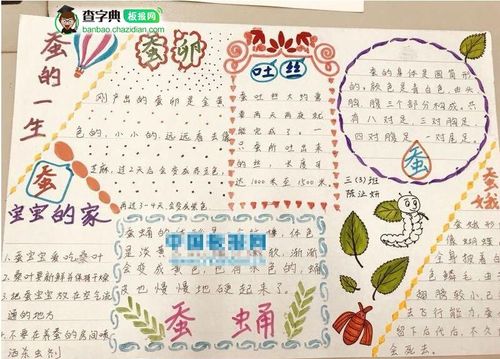 查字典 板报网
banbao.chazidian.com
蚕的一生
蚕卵
刚产出的蚕卵是金黄
色的,小小的,远远看去像
芝麻,过2天后会变成
再过3-4天,会变成紫色
吐丝
蚕吐丝大约需
要两天两夜就
能完成了。一
只蚕所吐出来
的丝,长度可
达1000米至1500米。
蚕的身体是圆筒形
的,颜色是青白色,由头
胸、腹三个部分构成。只
有八对足,三对胸足,
四对腹足,一对尾足。
蚕
三(3)班
陈
蚕宝宝的家
1.蚕宝宝爱吃桑叶
2.桑叶要新鲜并保持干燥
3.把蚕宝宝放在空气流
通的地方
4.不要在养蚕的房间喷
洒杀虫剂
中国板报网
会变成黄色,
皮也慢慢地硬起来了。
蚕蛹
蚕蛾
蚕蛾形
像蝴蝶
全身披着白
色鳞毛,由
翅膀较小已
去飞行能力,
留下后代后,不久
会死去。